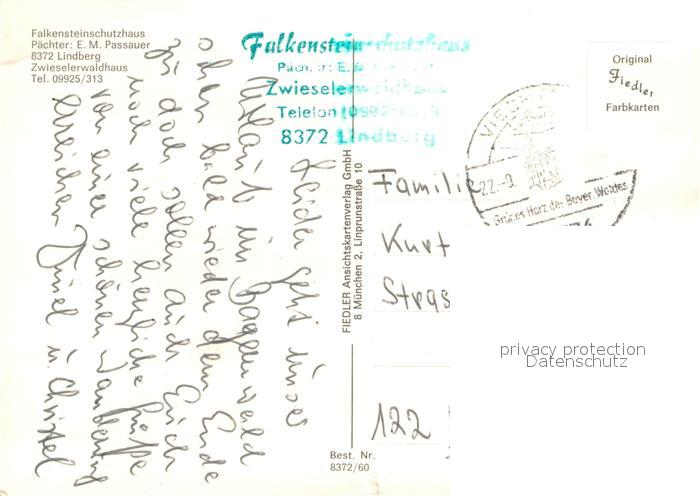 Falkensteinschutzhaus
Pächter: E. M. Passauer
8372 Lindberg
Zwieselerwaldhaus
Tel. 09925/313
Falkensteinschutzhaus
Pächter: E.
Zwieselerwaldhaus
Telefon (09925) 313
8372 Lindberg
Original
Fiedler
Farbkarten
22.-9
Grünes Herz des Bayer. Waldes
Leider geht unser
Urlaub im Bayerwald
schon bald wieder dem Ende
zu doch sollen auch Euch
noch viele herzliche Grüße
von einer schönen Wanderung
erreichen u. Christel
FIEDLER Ansichtskartenverlag GmbH
8 München 2, Linprunstraße 10
Familie
Kurt
Stras
122
Best. Nr.
8372/60
privacy protection
Datenschutz